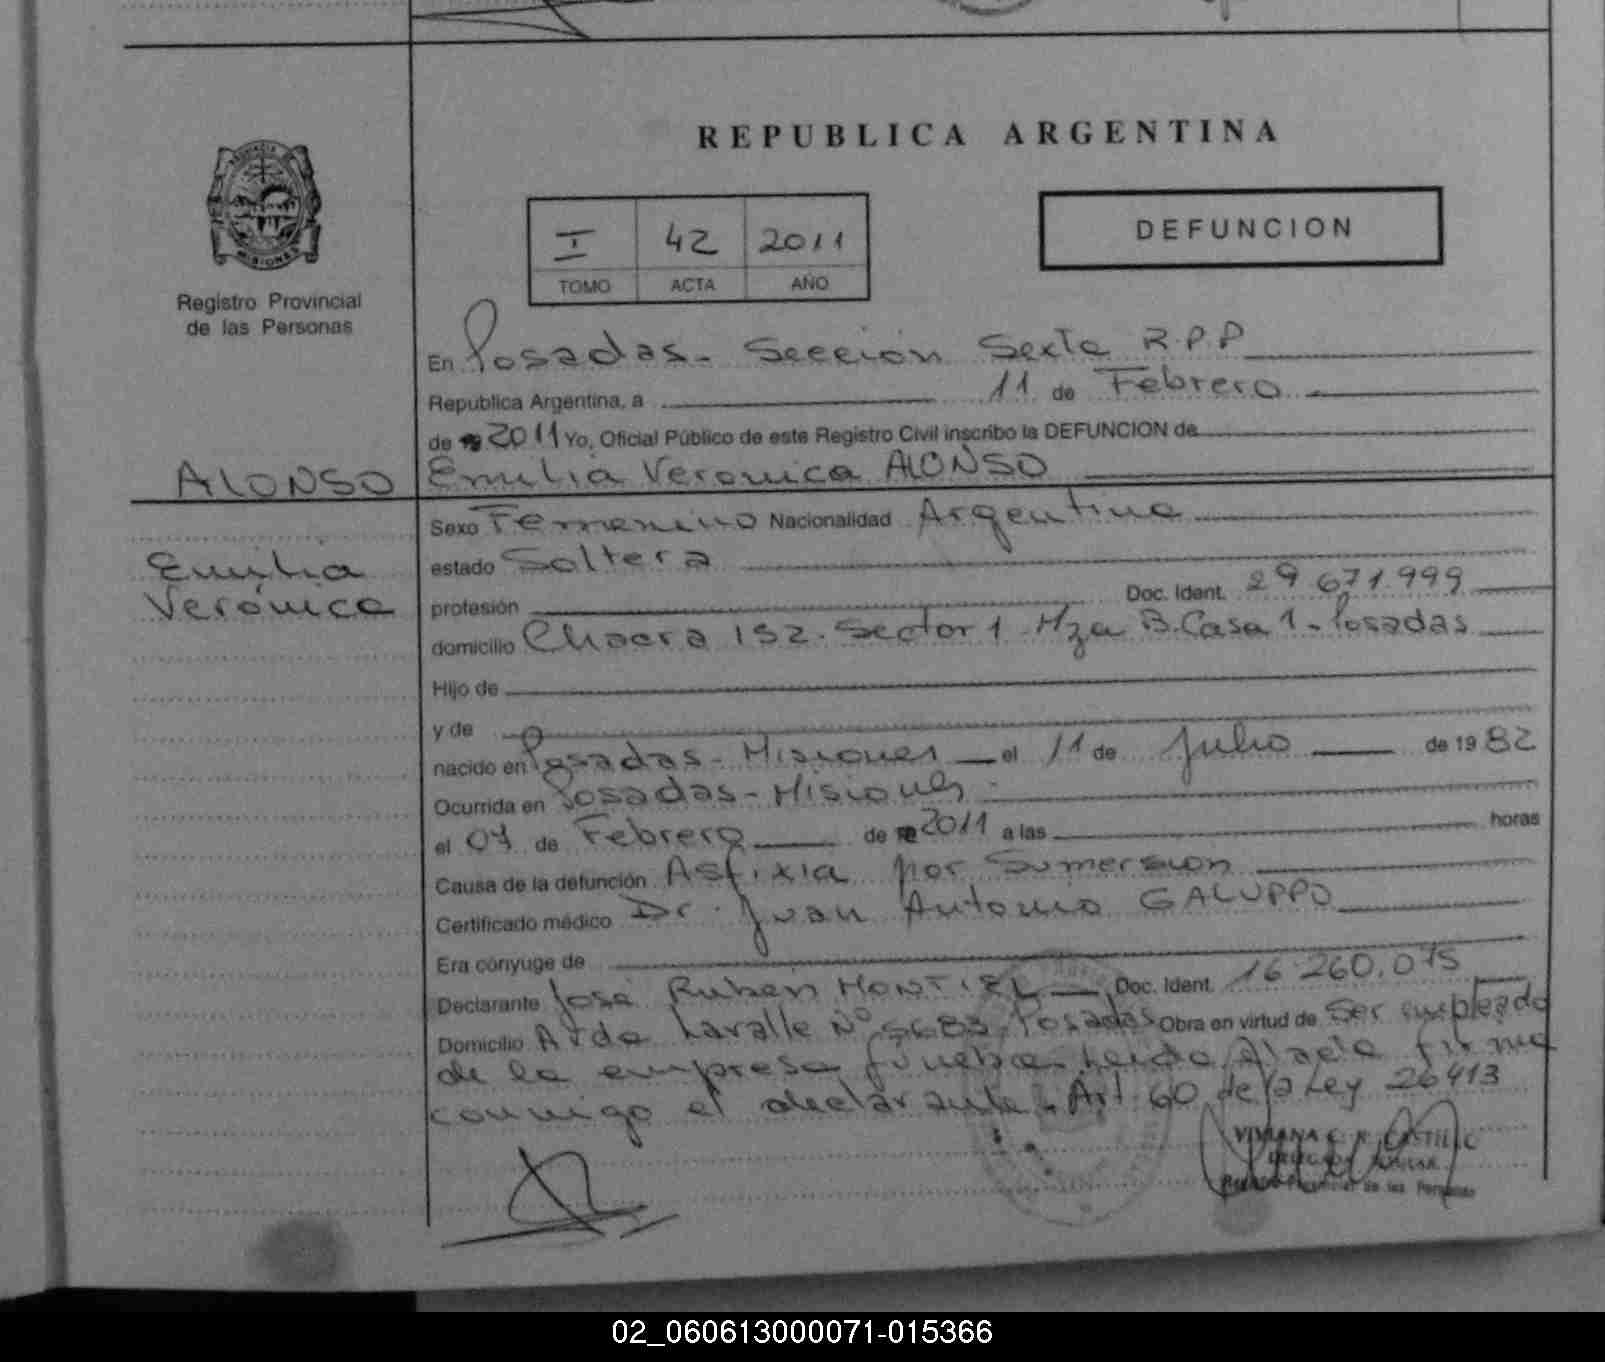 REPUBLICA ARGENTINA
PROVINCIA DE
MISIONES
Registro Provincial
de las Personas
I 42 2011
TOMO ACTA AÑO
DEFUNCION
En Posadas - Sección Sexta R.P.P
Republica Argentina, a 11 de Febrero
de 2011 Yo, Oficial Público de este Registro Civil inscribo la DEFUNCION de
Emilia Veronica ALONSO
ALONSO
Emilia
Verónica
Sexo Femenino Nacionalidad Argentina
estado Soltera
profesión Doc. Ident. 29.671.999
domicilio Chacra 152. Sector 1 Mza B. Casa 1 - Posadas
Hijo de
y de
nacido en Posadas - Misiones el 11 de Julio de 1982
Ocurrida en Posadas - Misiones
el 07 de Febrero de 2011 a las horas
Causa de la defunción Asfixia por Sumersion
Certificado médico Dr. Juan Antonio GALUPPO
Era cónyuge de
Declarante José Ruben MONTIEL Doc. Ident. 16.260.075
Domicilio Avda Lavalle Nº 5683 Posadas Obra en virtud de Ser empleado
de la empresa fúnebre. Leida el acta firma
conmigo el declarante. Art 60 de la Ley 26413
VIVIANA C. R. CASTILLO
Registro Provincial de las Personas
02_060613000071-015366